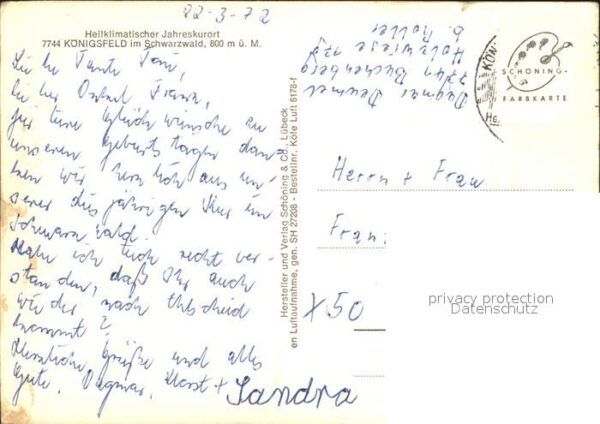 22-3-72
Heilklimatischer Jahreskurort
7744 KÖNIGSFELD im Schwarzwald, 800 m ü. M.
Liebe Tante Toni,
lieber Onkel Franz,
für eure Glückwünsche zu
unseren Geburtstagen dan-
ken wir herzlich aus un-
serer diesjährigen Kur im
Schwarzwald.
Habe ich Euch recht ver-
standen, daß Ihr auch
wieder nach
kommt?
Herzliche Grüße und alles
Gute, Dagmar, Horst +
Sandra
Hersteller und Verlag Schöning & Co., Lübeck
en Luftaufnahme, gen. SH 27208 - Bestellnr. Köfe Luft 6178-f
Dagmar
7741 Buchenberg
Holzwiese
b. Haller
KÖN
He
SCHÖNING-
FARBKARTE
Herrn + Frau
Fran
X50
privacy protection
Datenschutz